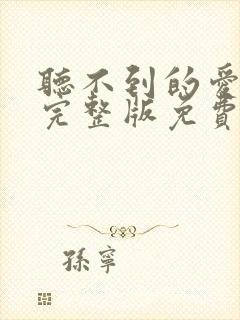 聽不到的愛
完整版免費
孫寧